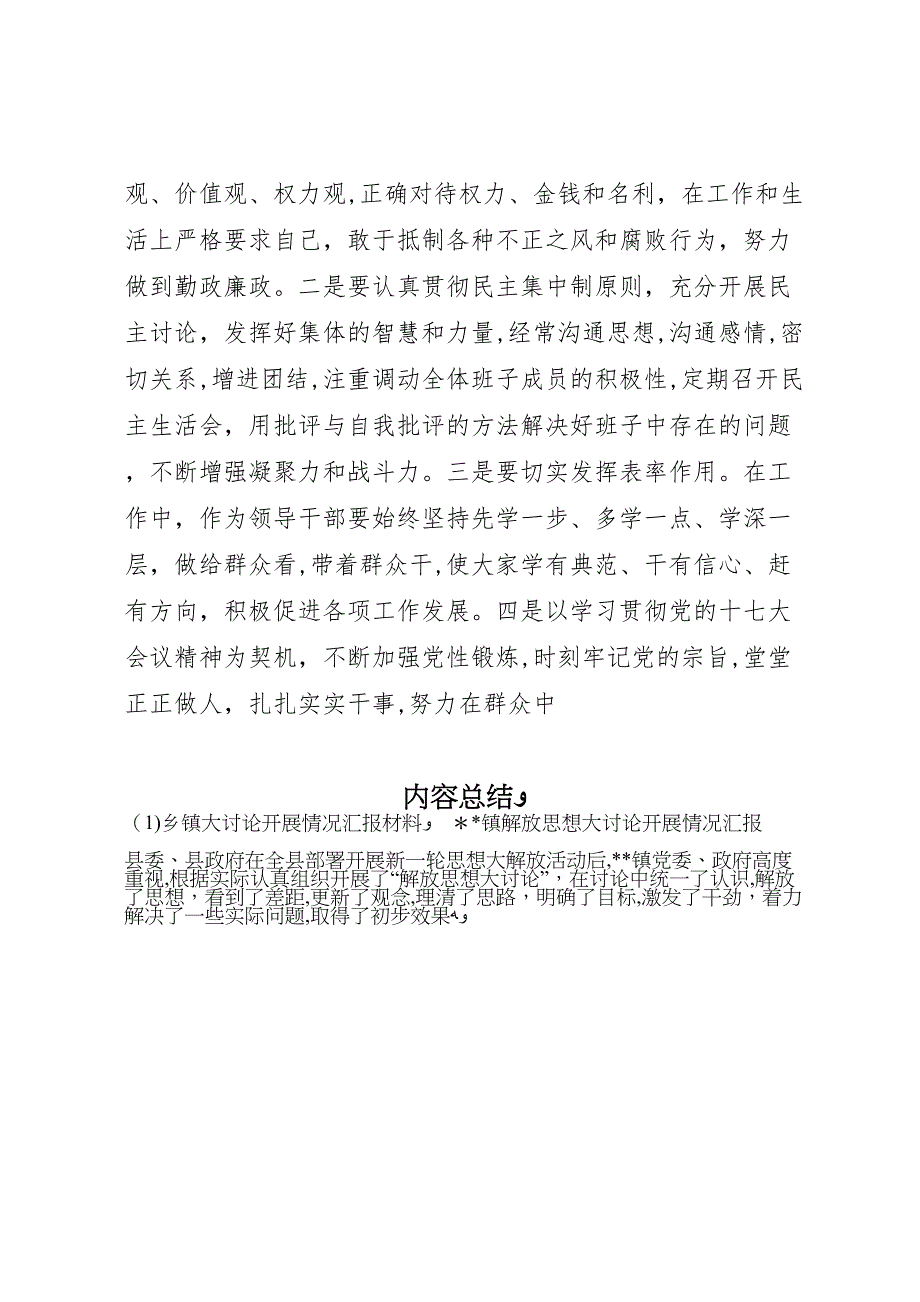 观、价值观、权力观,正确对待权力、金钱和名利，在工作和生
活上严格要求自己，敢于抵制各种不正之风和腐败行为，努力
做到勤政廉政。二是要认真贯彻民主集中制原则，充分开展民
主讨论，发挥好集体的智慧和力量,经常沟通思想,沟通感情,密
切关系,增进团结,注重调动全体班子成员的积极性,定期召开民
主生活会，用批评与自我批评的方法解决好班子中存在的问题
，不断增强凝聚力和战斗力。三是要切实发挥表率作用。在工
作中，作为领导干部要始终坚持先学一步、多学一点、学深一
层，做给群众看,带着群众干,使大家学有典范、干有信心、赶
有方向，积极促进各项工作发展。四是以学习贯彻党的十七大
会议精神为契机，不断加强党性锻炼,时刻牢记党的宗旨,堂堂
正正做人，扎扎实实干事,努力在群众中
内容总结ﻭ
（1)乡镇大讨论开展情况汇报材料ﻭ ＊*镇解放思想大讨论开展情况汇报
县委、县政府在全县部署开展新一轮思想大解放活动后,**镇党委、政府高度
重视,根据实际认真组织开展了“解放思想大讨论”，在讨论中统一了认识,解放
了思想，看到了差距,更新了观念,理清了思路，明确了目标,激发了干劲，着力
解决了一些实际问题,取得了初步效果ﻭﻪ